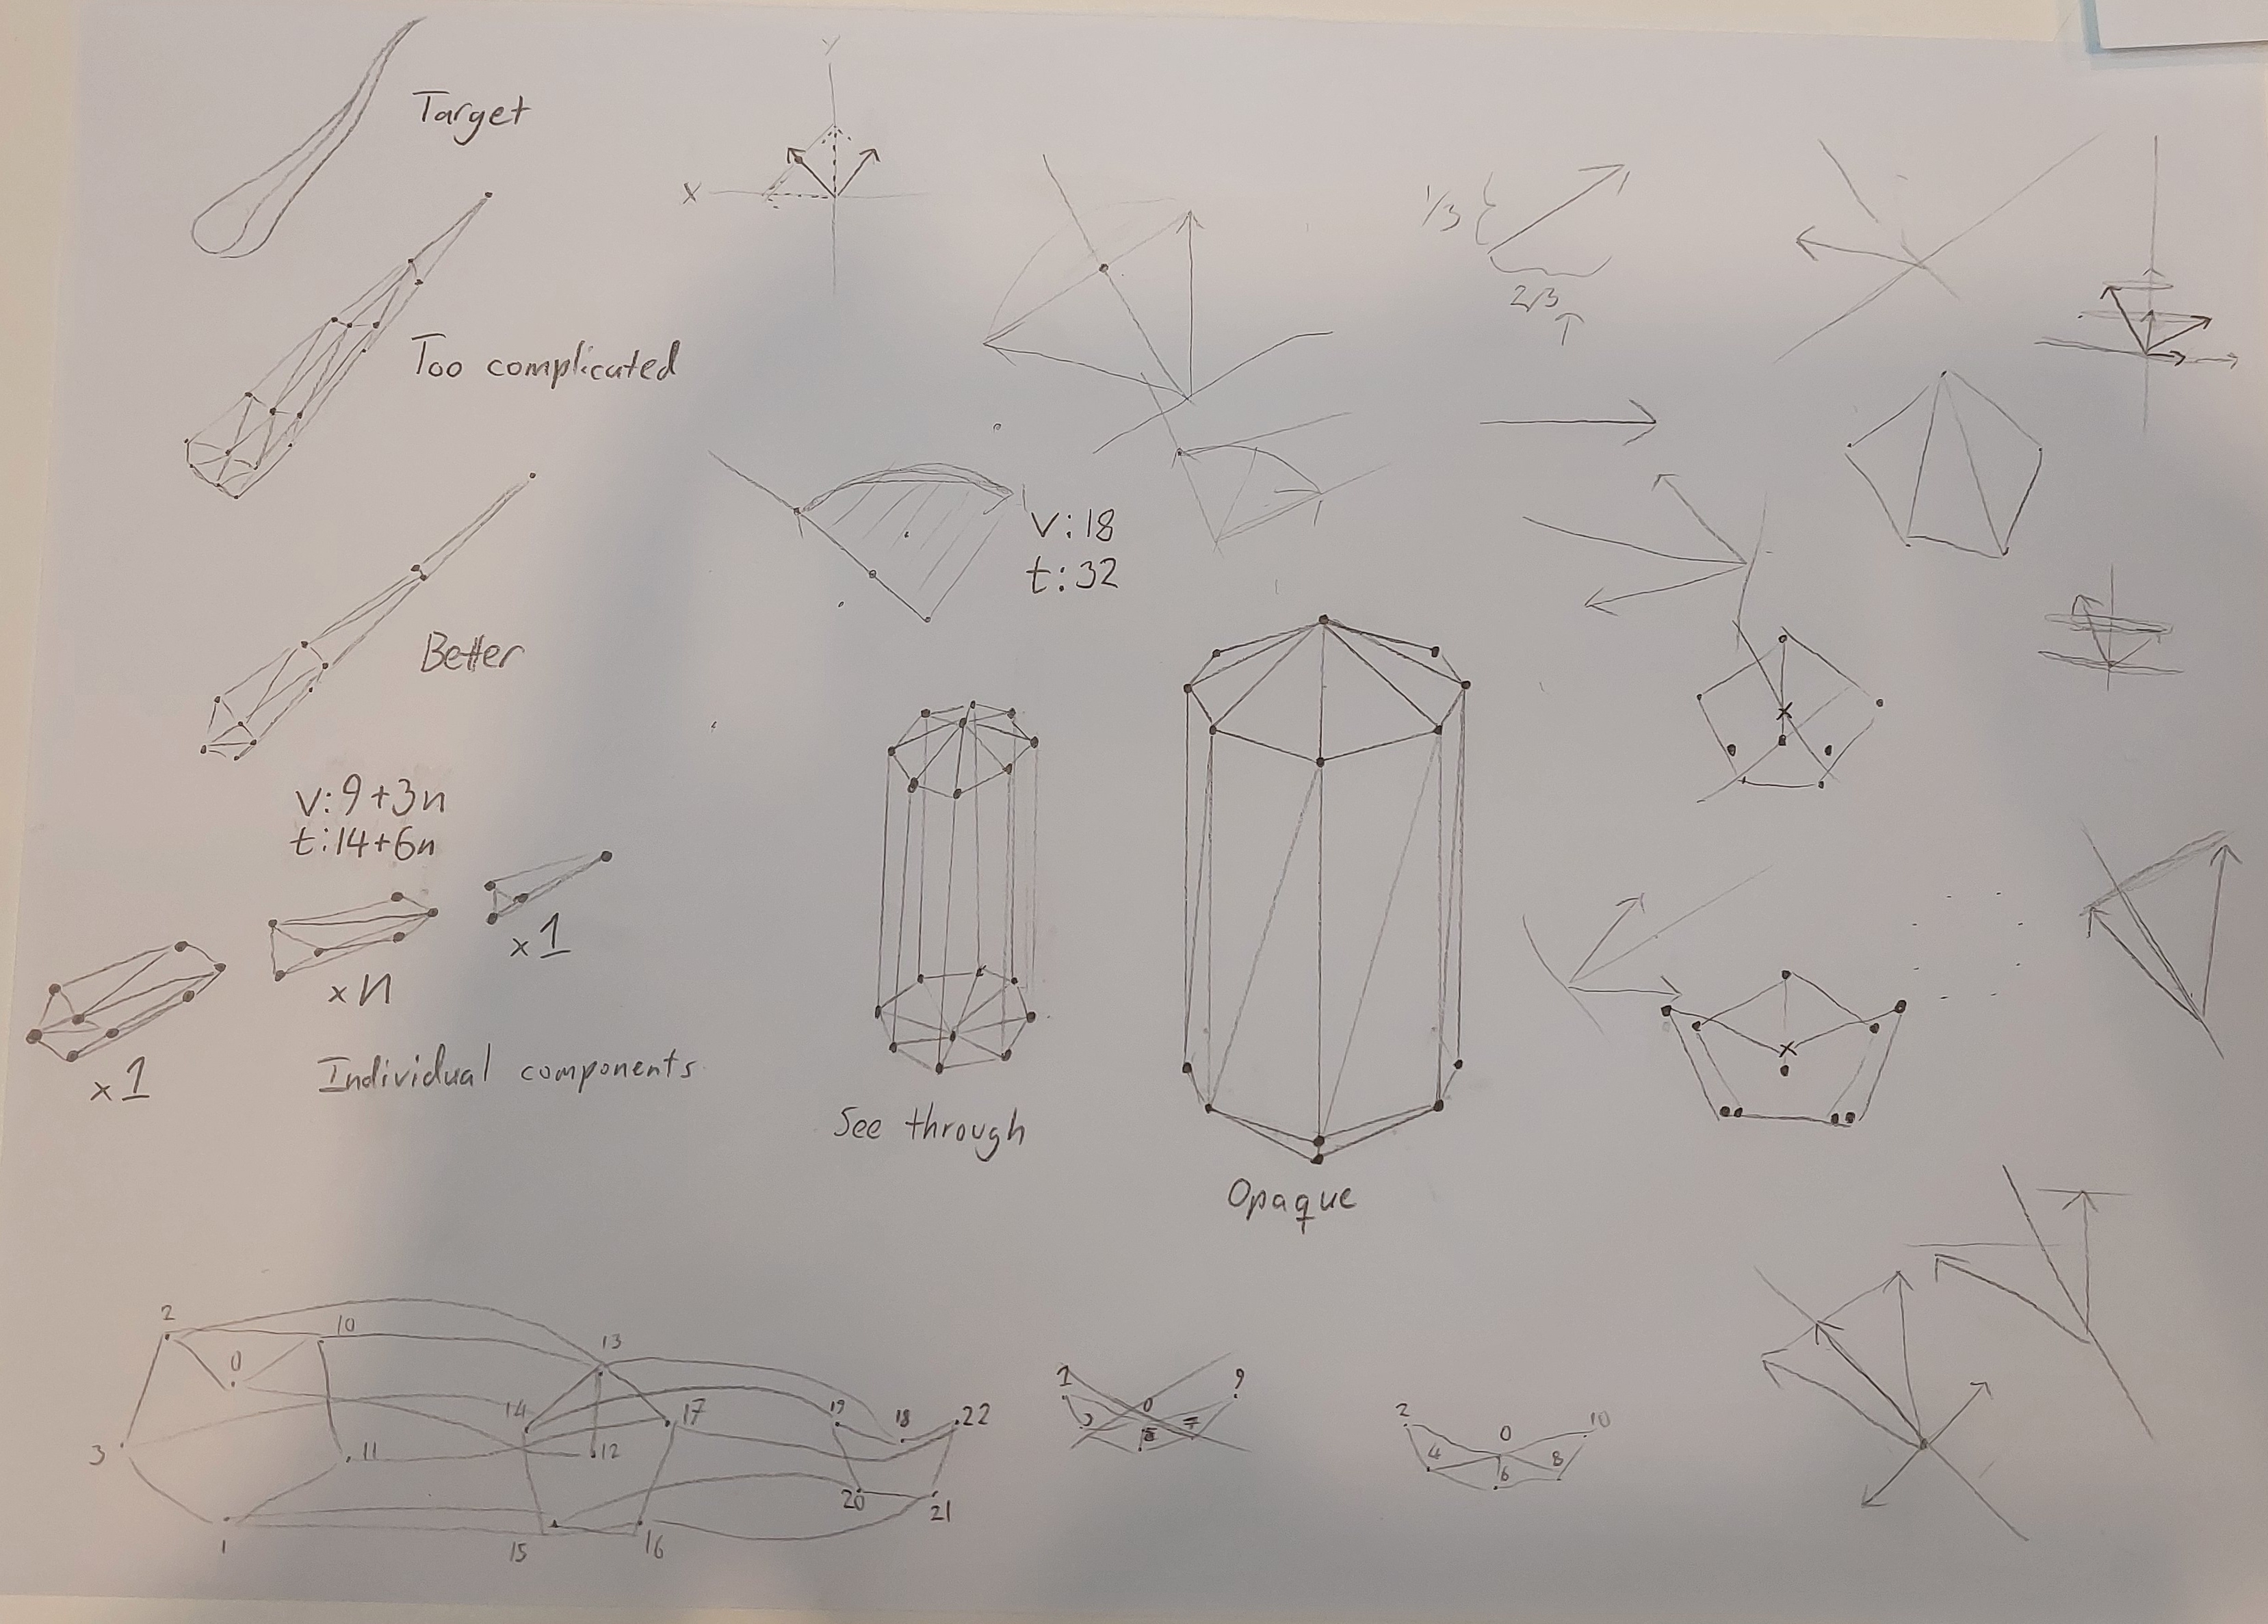 Target
Y
X
1/3
2/3
Too complicated
v:18
t:32
Better
v:9+3n
t:14+6n
x1
xn
x1
Individual components
See through
Opaque
2
10
0
3
11
1
13
14
17
12
15
16
19
18
22
20
21
1
0
9
7
2
0
10
4
6
8